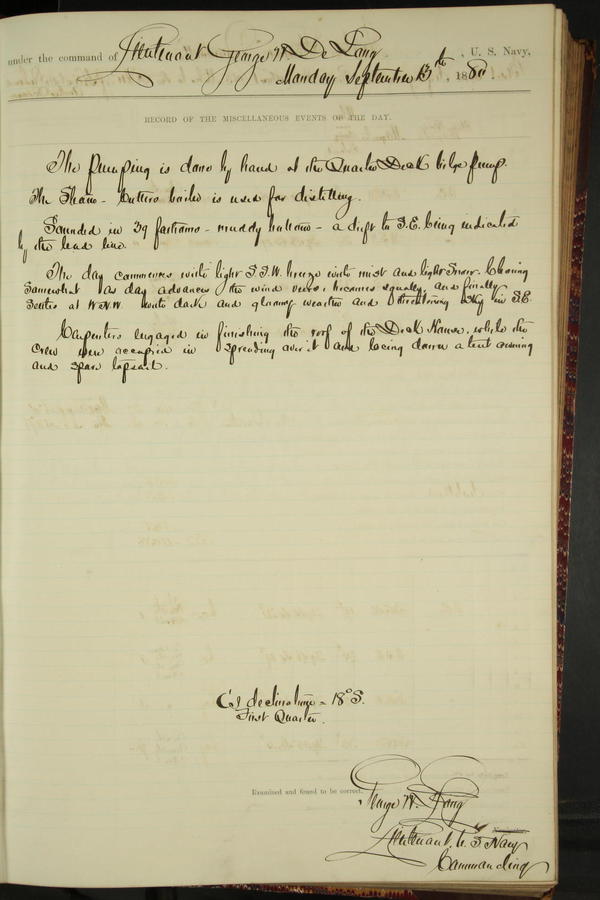 under the command of Lieutenant George W. De Long, U. S. Navy,
Monday September 13th, 1880.
RECORD OF THE MISCELLANEOUS EVENTS OF THE DAY.
The pumping is done by hand at the Quarter Deck bilge pump.
The Sharo-Cutters boiler is used for distilling.
Sounded in 39 fathoms - muddy bottom - a drift to S.E. being indicated
by the lead line.
The day commences with light S.S.W. breeze with mist and light snow. Clearing
somewhat as day advances the wind veers, becomes squally, and finally
settles at W.N.W. with dark and gloomy weather and threatening sky in S.E.
Carpenters engaged in finishing the roof of the Deck House, while the
crew were occupied in spreading over it and lacing down a tent awning
and spare topsail.
☾'s declination = 18° S.
First Quarter.
Examined and found to be correct.
George W. De Long
Lieutenant U. S. Navy
Commanding